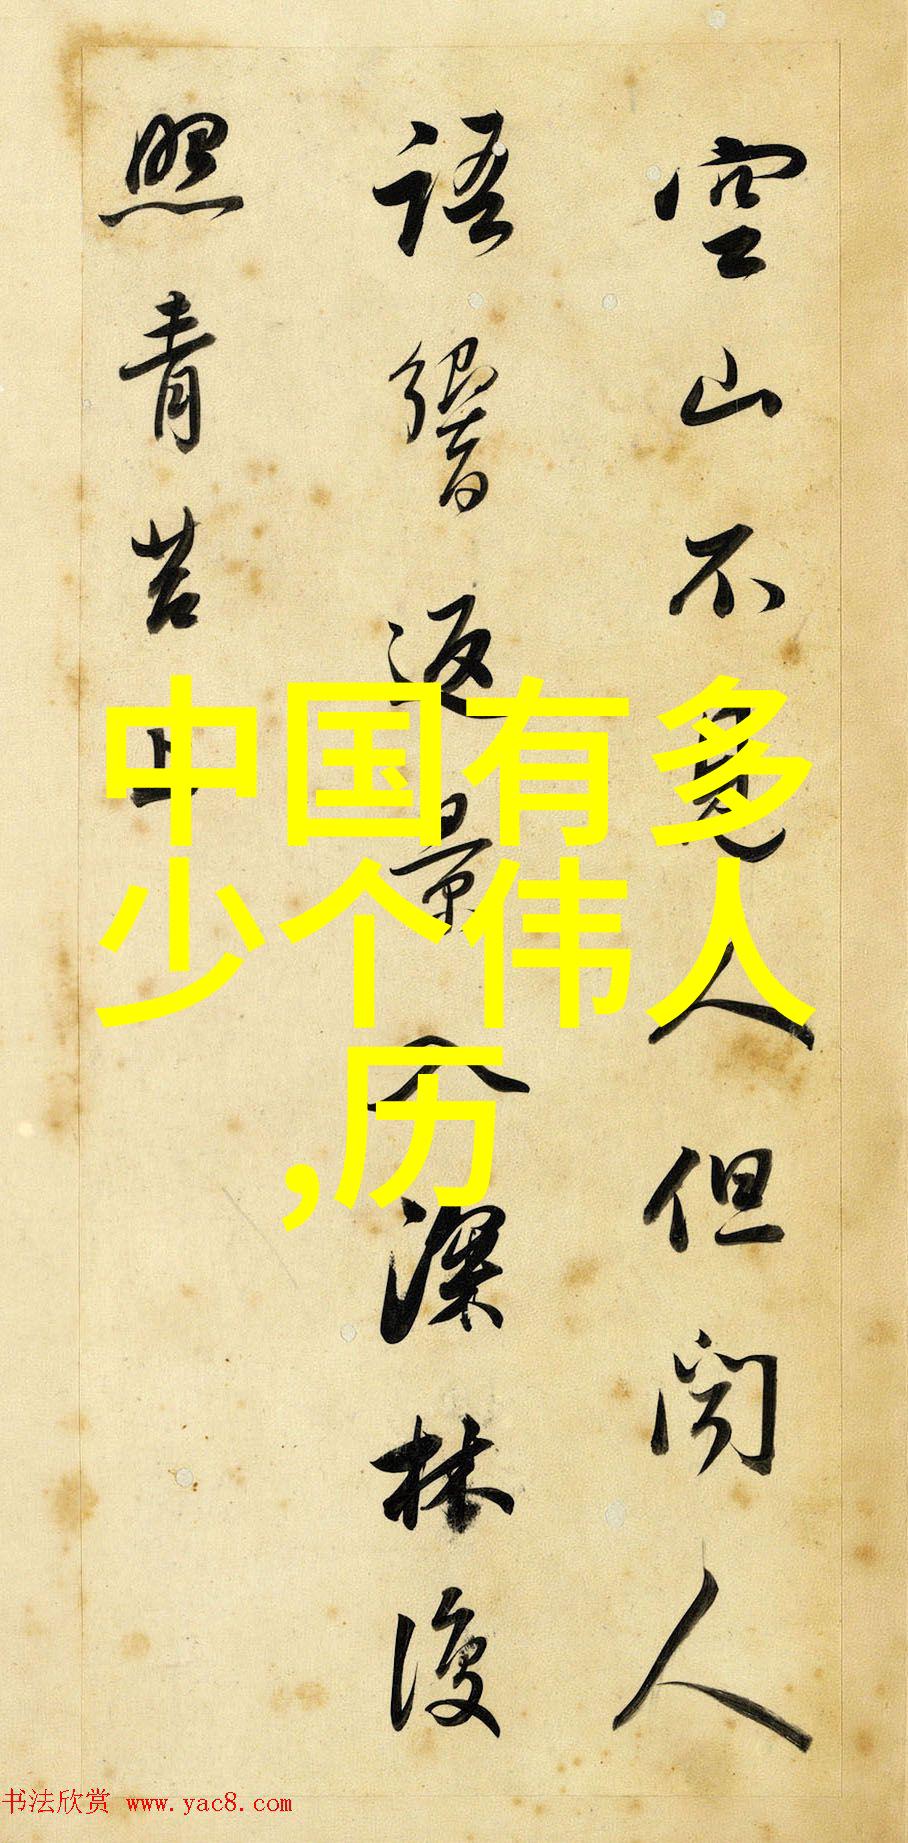 空山不見人但聞人
語響返景入深林復
照青苔上
中国有多
少个伟人
,历
书法欣赏 www.yac8.com